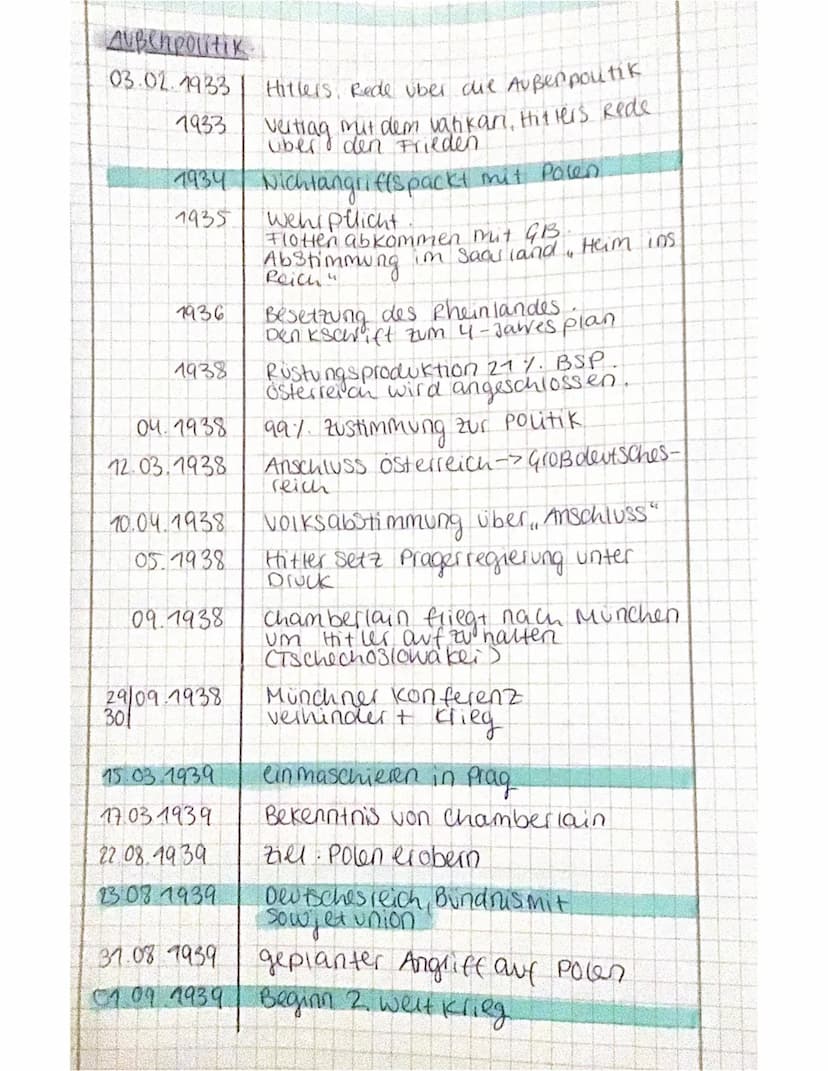 Außenpolitik
03.02.1933 Hitlers Rede über die Außenpolitik
1933 Vertrag mit dem Vatikan, Hitlers Rede
über den Frieden
1934 Nichtangriffspackt mit Polen
1935 Wehrpflicht.
Flottenabkommen mit GB.
Abstimmung im Saarland „Heim ins
Reich"
1936 Besetzung des Rheinlandes.
Denkschrift zum 4-Jahresplan
1938 Rüstungsproduktion 21% BSP.
Österreich wird angeschlossen.
04.1938 99% Zustimmung zur Politik
12.03.1938 Anschluss Österreich -> Großdeutsches-
reich
10.04.1938 Volksabstimmung über „Anschluss"
05.1938 Hitler setz Pragerregierung unter
Druck
09.1938 Chamberlain fliegt nach München
um Hitler aufzuhalten
(Tschechoslowakei)
29/09.1938 Münchner Konferenz
30/ verhindert Krieg
15.03.1939 einmaschieren in Prag
17.03.1939 Bekenntnis von Chamberlain
22.08.1939 Ziel: Polen erobern
23.08.1939 Deutschesreich, Bündnis mit
Sowjetunion
31.08.1939 geplanter Angriff auf Polen
01.09.1939 Beginn 2. Weltkrieg